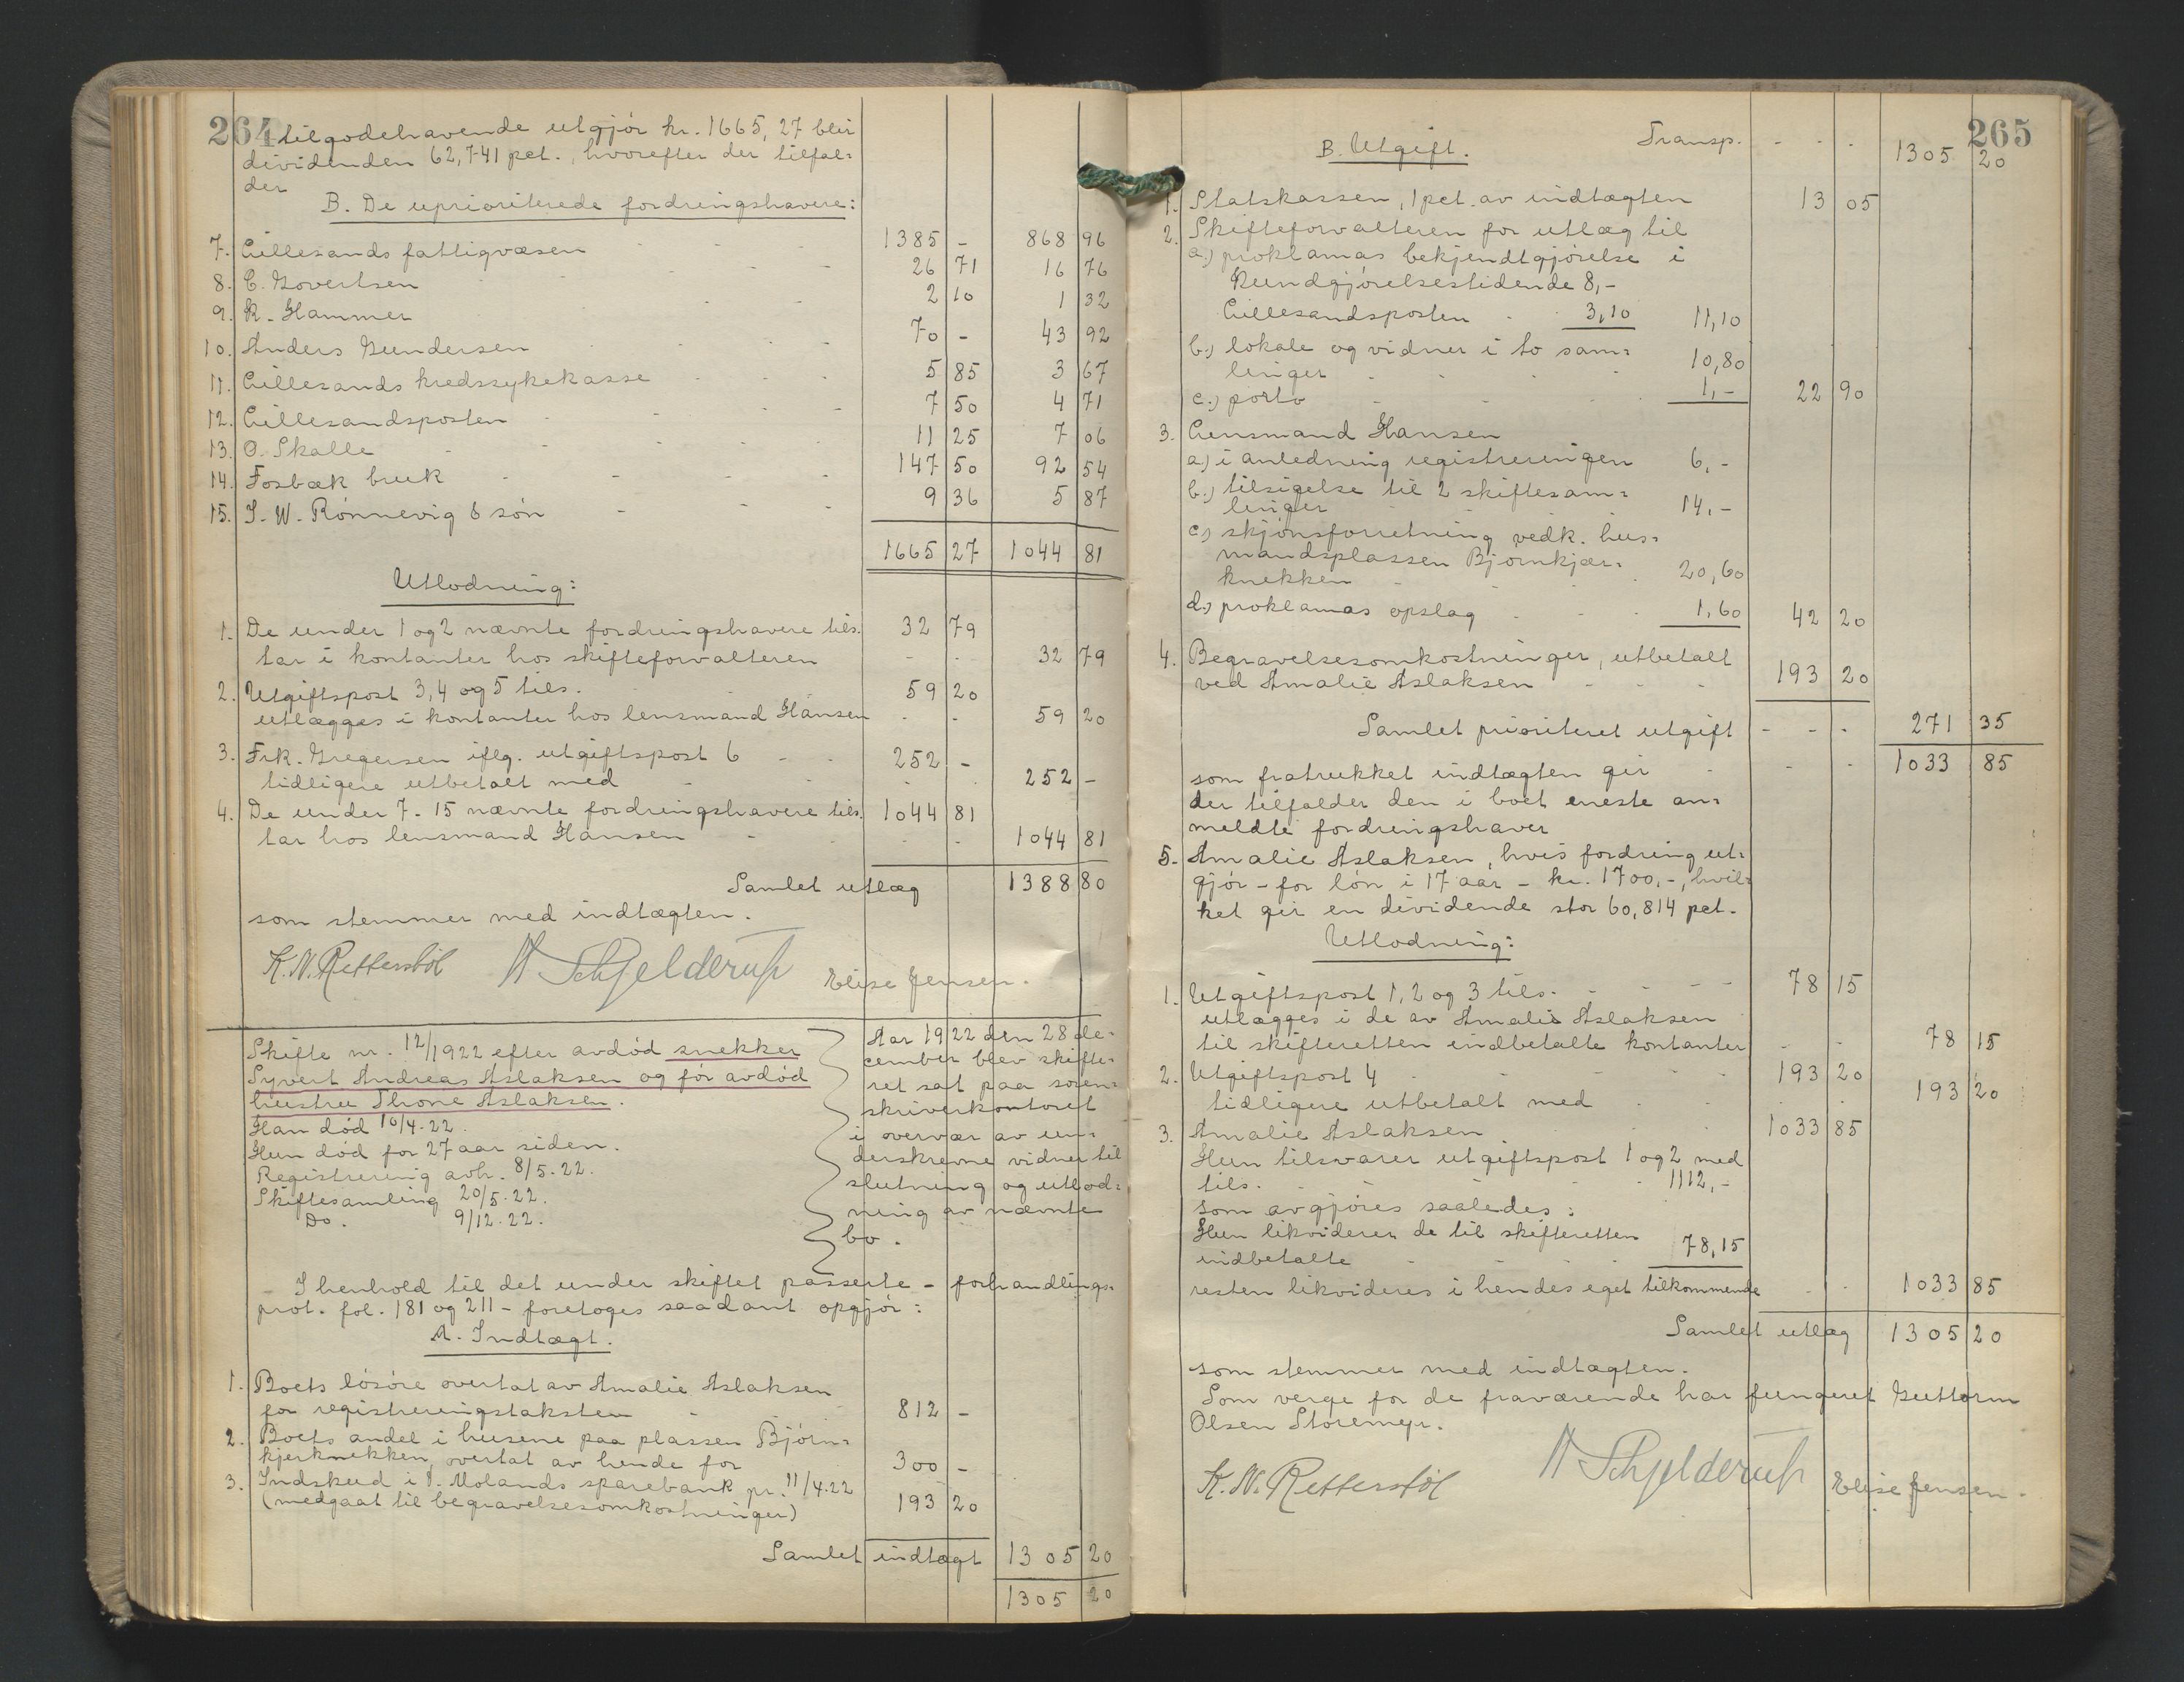 264
tilgodehavende utgjør kr. 1665,27 blir
dividenden 62,741 pct., hvorefter der tilfal=
der
B. De uprioriterede fordringshavere:
7. Lillesands fattigvæsen - - - 1385 - 868 96
8. C. Govertsen - - - 26 71 16 76
9. K. Hammer - - - 2 10 1 32
10. Anders Gundersen - - - 70 - 43 92
11. Lillesands kredssykekasse - - - 5 85 3 67
12. Lillesandsposten - - - 7 50 4 71
13. O. Skalle - - - 11 25 7 06
14. Fosbæk bruk - - - 147 50 92 54
15. J. W. Rønnevig & søn - - - 9 36 5 87
1665 27 1044 81
Utlodning:
1. De under 1 og 2 nævnte fordringshavere tils. 32 79
tar i kontanter hos skifteforvalteren - - 32 79
2. Utgiftspost 3, 4 og 5 tils. - - 59 20
utlægges i kontanter hos lensmand Hansen - - 59 20
3. Frk. Gregersen iflg. utgiftspost 6 - - 252 -
tidligere utbetalt med - - - 252 -
4. De under 7-15 nævnte fordringshavere tils. 1044 81
tar hos lensmand Hansen - - - 1044 81
Samlet utlæg 1388 80
som stemmer med indtægten.
K. N. Rettersbøl A Schjelderup Elise Jensen.
Skifte nr. 12/1922 efter avdød snekker
Syvert Andreas Aslaksen og før avdød
hustru Thone Aslaksen.
Han død 10/4.22.
Hun død for 27 aar siden.
Registrering avh. 8/5.22.
Skiftesamling 20/5.22.
Do. 9/12.22.
Aar 1922 den 28 de=
cember blev skifte=
ret sat paa soren=
skriverkontoret
i overvær av un=
derskrevne vidner til
slutning og utlod=
ning av nævnte
bo.
I henhold til det under skiftet passerte - forhandlings=
prot. fol. 181 og 211 - foretoges saadant opgjør:
A. Indtægt.
1. Boets løsøre overtat av Amalie Aslaksen
for registreringstaksten - - 812 -
2. Boets andel i husene paa plassen Bjørn=
kjerknekken, overtat av hende for 300 -
3. Indskud i V. Molands sparebank pr. 11/4.22
(medgaat til begravelsesomkostninger) 193 20
Samlet indtægt 1305 20
1305 20
265
B. Utgift. Transp. - - - 1305 20
1. Statskassen, 1 pct. av indtægten 13 05
2. Skifteforvalteren for utlæg til
a.) proklamas bekjendtgjørelse i
Kundgjørelsestidende 8,-
Lillesandsposten - 3,10 11,10
b.) lokale og vidner i to sam=
linger - - - 10,80
c.) porto - - - 1,- 22 90
3. Lensmand Hansen
a.) i anledning registreringen 6,-
b.) tilsigelse til 2 skiftesam=
linger - - - 14,-
c.) skjønsforretning vedk. hus=
mandsplassen Bjørnkjær=
knekken - - - 20,60
d.) proklamas opslag - - 1,60 42 20
4. Begravelsesomkostninger, utbetalt
ved Amalie Aslaksen - - - 193 20
Samlet prioriteret utgift - - - 271 35
som fratrukket indtægten gir - - - 1033 85
der tilfalder den i boet eneste an=
meldte fordringshaver
5. Amalie Aslaksen, hvis fordring ut=
gjør - for løn i 17 aar - kr. 1700.-, hvil=
ket gir en dividende stor 60,814 pct.
Utlodning:
1. Utgiftspost 1, 2 og 3 tils. - - - - 78 15
utlægges i de av Amalie Aslaksen
til skifteretten indbetalte kontanter - - 78 15
2. Utgiftspost 4 - - - - 193 20
tidligere utbetalt med - - - 193 20
3. Amalie Aslaksen - - - 1033 85
Hun tilsvarer utgiftspost 1 og 2 med
tils. - - - - 1112,-
som avgjøres saaledes:
Hun likviderer de til skifteretten
indbetalte - - - 78,15
resten likvideres i hendes eget tilkommende - - 1033 85
Samlet utlæg 1305 20
som stemmer med indtægten.
Som verge for de fraværende har fungeret Guttorm
Olsen Storemyr.
K. N. Rettersbøl A Schjelderup Elise Jensen.